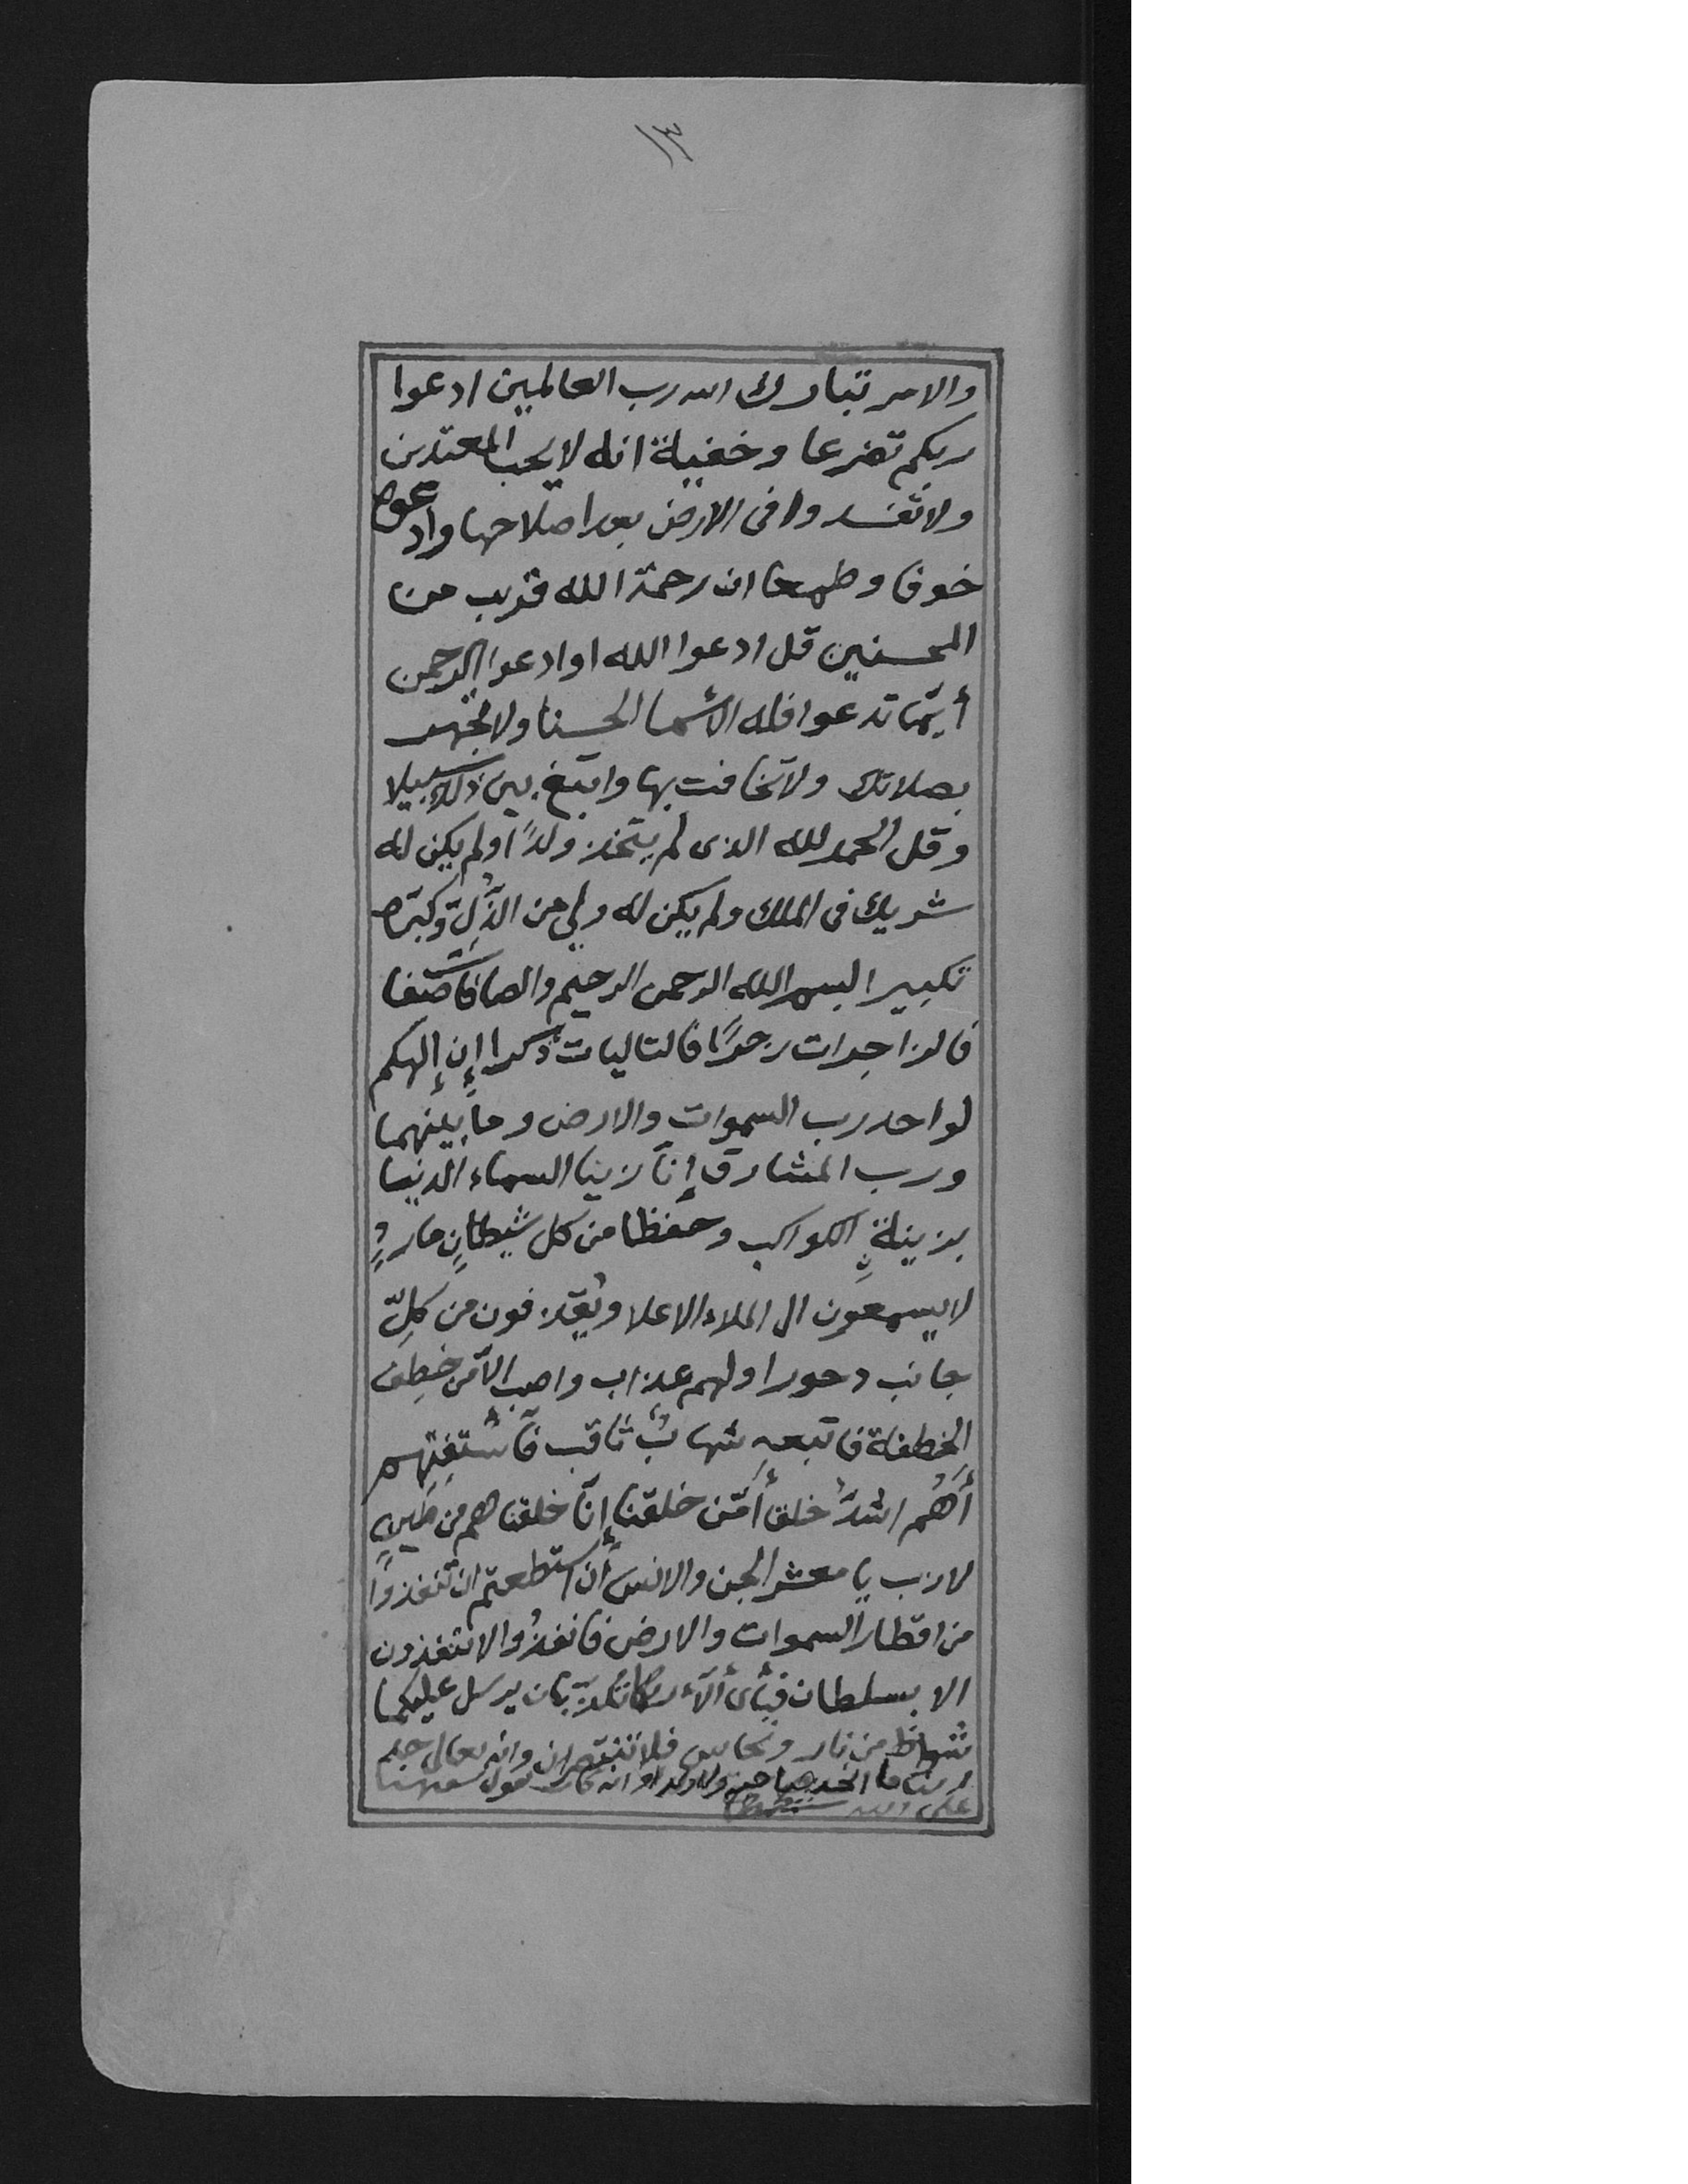 ١٣
والامر تبارك الله رب العالمين ادعوا
ربكم تضرعا وخفية انه لا يحب المعتدين
ولا تفسدوا فى الارض بعد اصلاحها وادعوه
خوفا وطمعا ان رحمة الله قريب من
المحسنين قل ادعوا الله او ادعوا الرحمن
أيّما تدعوا فله الأسما الحسنا ولا تجهر
بصلاتك ولا تخافت بها وابتغ بين ذلك سبيلا
وقل الحمد لله الذى لم يتخذ ولدًا ولم يكن له
شريك فى الملك ولم يكن له ولي من الذُّلِّ وكبّره
تكبيرا بسم الله الرحمن الرحيم والصافات صفا
فالزاجرات زجرًا فالتاليات ذكرا إن إلهكم
لواحد رب السموات والارض وما بينهما
ورب المشارق إنّا زينا السماء الدنيا
بزينةٍ الكواكب وحفظا من كل شيطانٍ ماردٍ
لا يسمعون الى الملاء الاعلا ويُقذفون من كلِّ
جانب دحورا ولهم عذاب واصب إلا من خطِف
الخطفة فاتبعه شهابٌ ثاقب فاستفتِهِم
أهُم اشدُّ خلقا أمّن خلقنا إنّا خلقناهم من طينٍ
لازب يا معشر الجن والانس أن استطعتم ان تنفذوا
من اقطار السموات والارض فانفذُوا لا تنفذون
الا بسلطان فبأى ألآء ربكما تكذّبان يرسل عليكما
شواظ من نار ونحاس فلا تنتصران وانه تعالى جد
ربنا ما اتخذ صاحبة ولا ولدا وانه كان يقول سفيهنا
على الله شططا